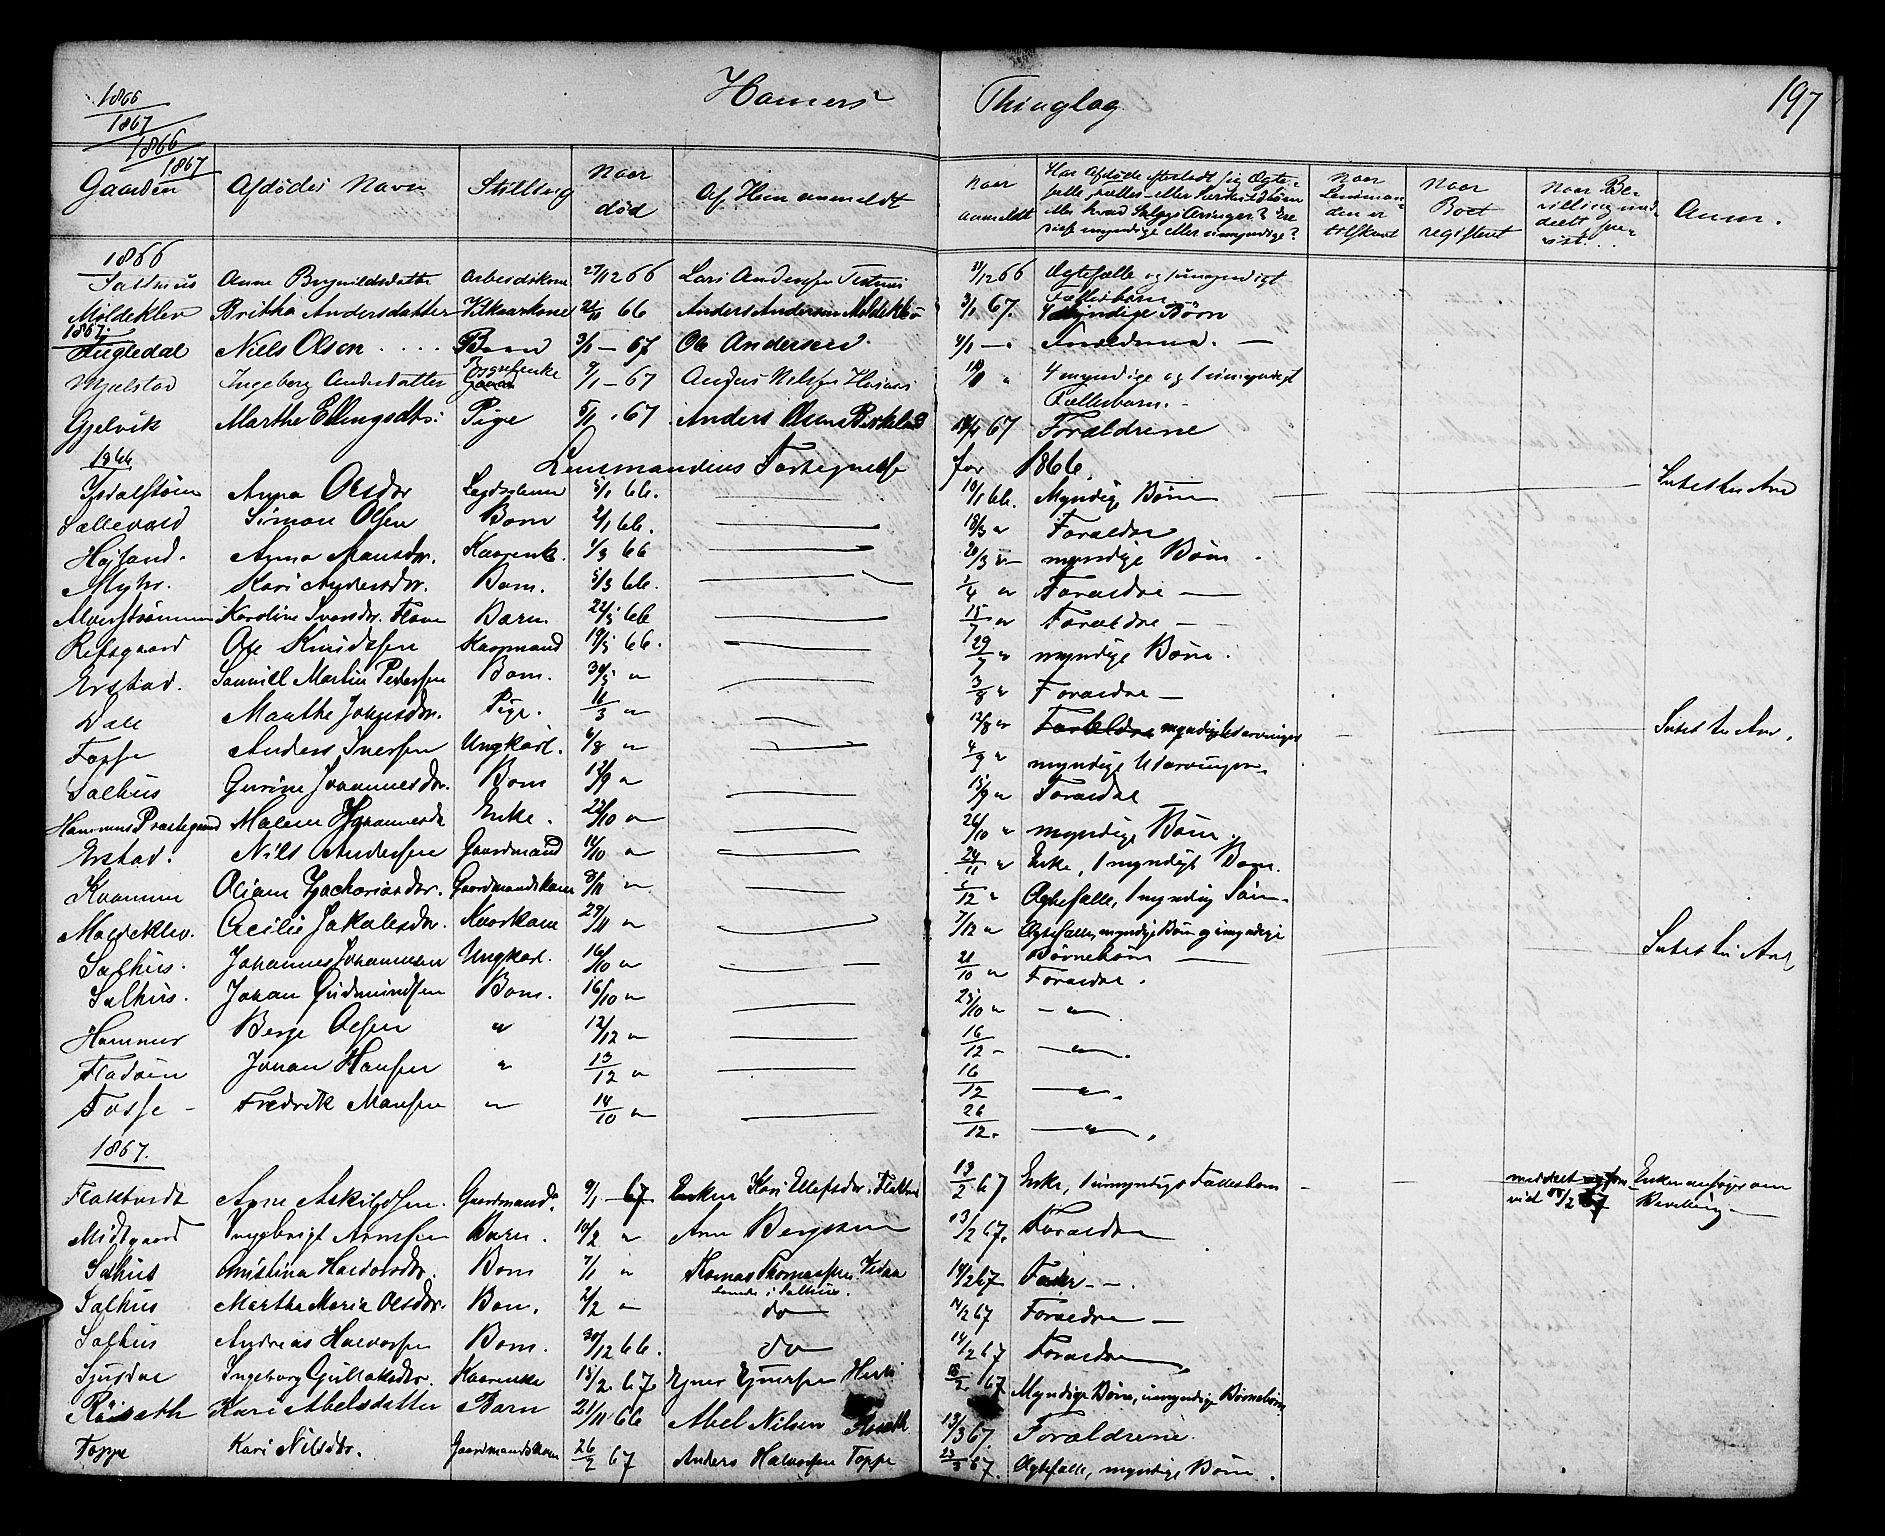 1866
1867
1866
1867
Hamers Thinglag 197
Gaarden Afdødes Navn Stilling Naar død Af Hvem anmeldt Naar anmeldt Har Afdøde efterladt sig Ægtefælle, Fælles- eller Særkuldbørn eller hvad Slags Arvinger? Ere disse myndige eller umyndige? Naar Lensmanden er tilskrevet Naar Boet registreret Naar Bevilling meddeelt Anm.
1866
Salhus Anne Brynildsdatter Arbeidskone 27/12 66 Lars Andersen 31/12 66 Ægtefælle og 1 umyndigt Fællesbarn
Moldeklev Britha Andersdatter Vilkaarkone 21/10 66 Anders Andersen Moldeklev 3/1 67. 4 Myndige Børn
1867.
Hugledal Niels Olsen Barn 3/1 - 67 Ole Andersen 4/1 - Forældrene. -
Mjelstad Ingeborg Andersdatter 9/1 - 67 4 myndige og 1 umyndigt Fællesbarn. -
Gjelvik Marthe Ellingsdtr: Pige 5/1 . 67 Anders Olsen Birkeland 67 Forældrene
1866 Lensmandens Fortegnelse for 1866.
Isdalstøen Anna Olsdr Lægdslem 5/1 66. 10/1 66. Myndige Børn Intet til Arv
Sællevold Simon Olsen Barn 2/1 66. 18/3 " Forældre
Højland. Anna Monsdr. Kaarenk. 1/3 66 20/3 " myndige Børn.
Myhr. Kari Andersdr. Barn. 5/3 66. 1/4 " Forældre
Alverstrømmen Karoline Iversdr. Barn 22/5 66 15/7 " Forældre
Refsgaard Ole Knudsen Kaarmand 19/5 66. 29/7 " myndige Børn.
Erstad. Samuel Martin Pedersen Barn. 30/5 " 3/8 " Forældre
Dale Marthe Johnsdr. Pige. 11/3 " 12/8 " Forældre myndige Udarvinger Intet til Arv.
Fosse Anders Iversen Ungkarl. 4/8 " 4/9 " myndige Udarvinger
Salhus Gurine Johannesdr. Barn 12/9 " 15/9 " Forældre
Hammers Præstegaard Malene Johannesdr Enke. 22/10 " 26/10 " myndige Børn.
Erstad. Nils Andersen Gaardmand 14/10 " 24/11 " Enke, 1 myndigt Barn.
Kvamme Oliane Zachariasdr. Gaardmandskone 8/11 " 1/12 " Ægtefælle, 1 myndig Søn.
Moldeklev. Cecilie Jakobsdr. Kaarkone 29/11 " 7/12 " Ægtefælle, myndige Børn og umyndige Børnebørn Intet til Arv
Salhus. Johannes Johannesen Ungkarl. 16/10 " 21/10 " Forældre.
Salhus. Johan Gudmundsen Barn. 16/10 " 23/10 " - " -
Hammer Berge Olsen " 12/12 " 16/12 - - " -
Fladøen Johan Hansen " 13/12 " 16/12 - " -
Fosse - Fredrik Monsen " 14/10 " 26/12. - " -
1867.
Flaktvedt Arne Askildsen. Gaardmand. 9/1 - 67 Enken Kari Ulefsdr. 13/2 67 Enke, 1 umyndigt Fællesbarn Enken ansøger om Bevilling
Midtgaard Arnesen Barn. 10/2 " Arne Bergesen 13/2 67. Forældre
Salhus Christina Haldorsdr. Barn 7/1 " Thomas Thomassen i Salhus. 14/2 67 Fader - -
Salhus Marthe Maria Olsdr. Barn. 2/2 " do 14/2 67 Forældre -
Salhus Andreas Halvorsen Barn. 30/12 66. do 14/2 67 Forældre
Ingeborg Gullaksdr. Kaarenke 15/2. 67. 67 Myndige Børn, umyndige Børnebørn
Kari Abelsdatter Barn 21/11 66 Abel Nilsen 13/3 67. Forældrene.
Toppe Kari Nilsdr. Gaardmandskone 26/2 67 Anders Halvorsen Toppe 23/3 67. Ægtefælle, myndige Børn.